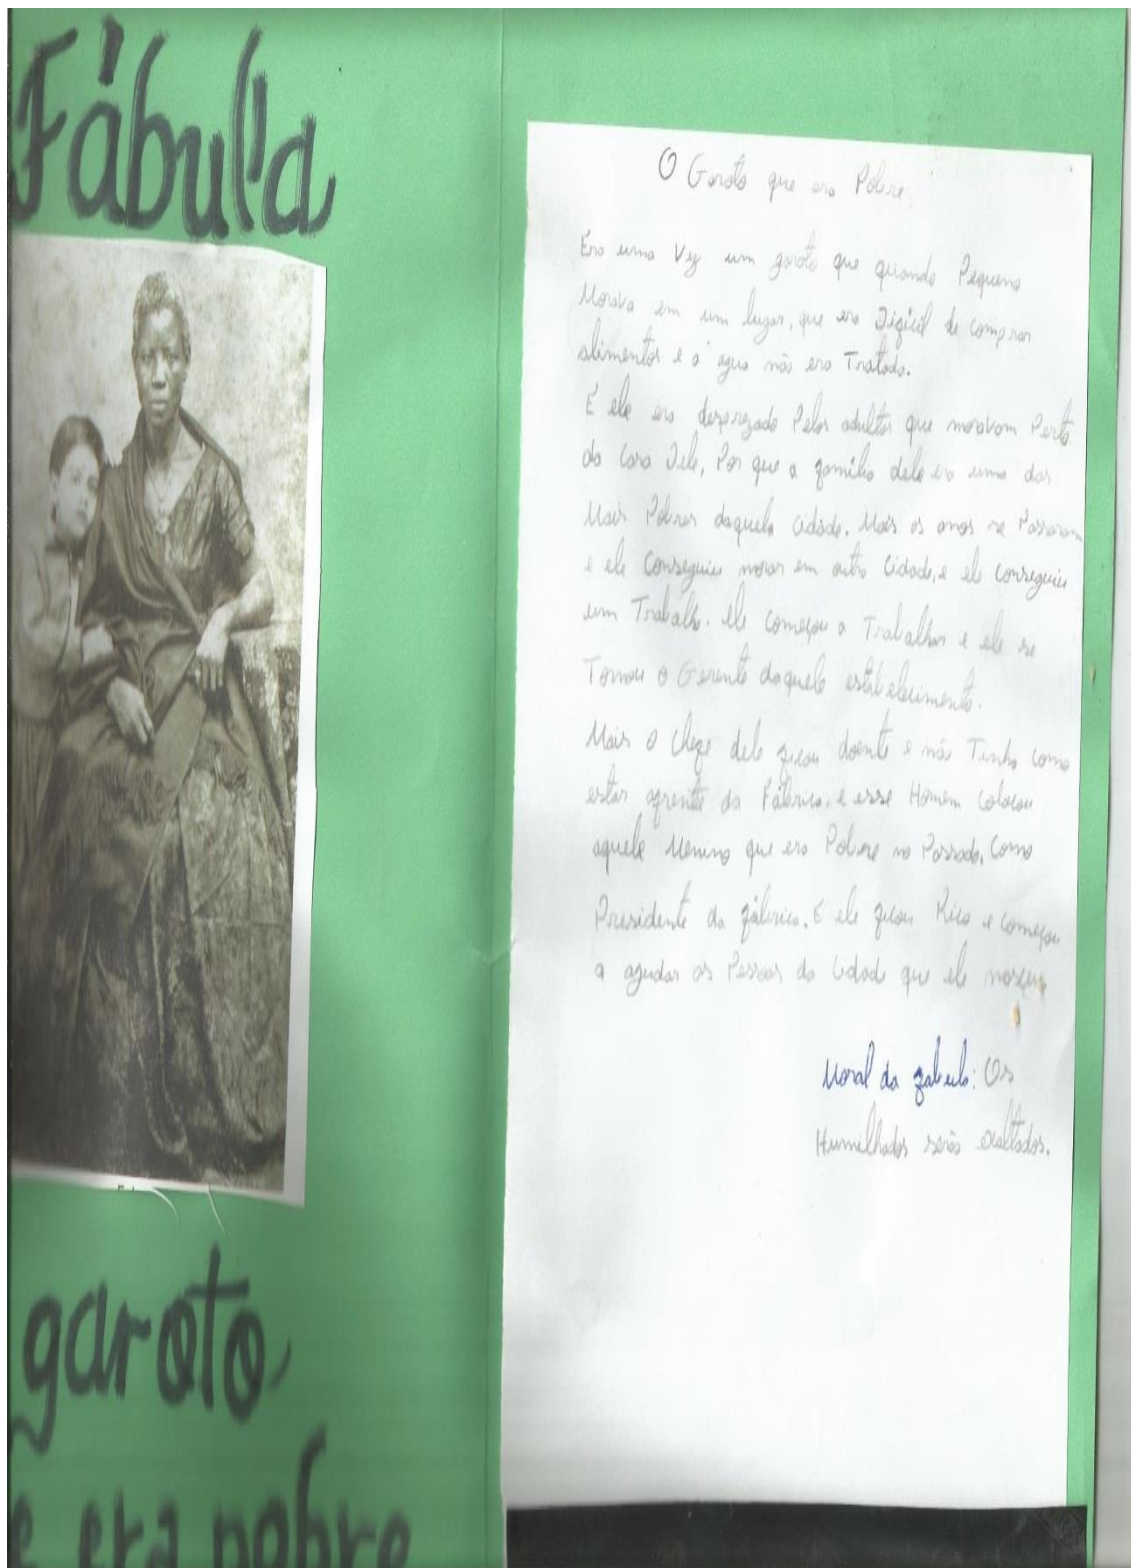 Fábula
garoto
e era pobre
O Garoto que era Pobre.
Era uma Vez um garoto que quando Pequeno
Morava em um lugar, que era Difícil de comprar
alimentos e a água não era Tratada.
E ele era desprezado Pelos adultos que moravam Perto
da Casa Dele, Por que a família dele era uma das
Mais Pobres daquela cidade. Mais os anos se Passaram
e ele Conseguiu morar em outra Cidade, e ele conseguiu
um Trabalho. ele começou a Trabalhar e ele se
Tornou o Gerente daquele estabelecimento.
Mais o Chefe dele ficou doente e não Tinha como
estar afrente da Fábrica, e esse Homem colocou
aquele Menino que era Pobre no Passado, Como
Presidente da fábrica. E ele ficou Rico e começou
a ajudar as Pessoas da Cidade que ele nasceu
Moral da fábula: Os
Humilhados serão exaltados.